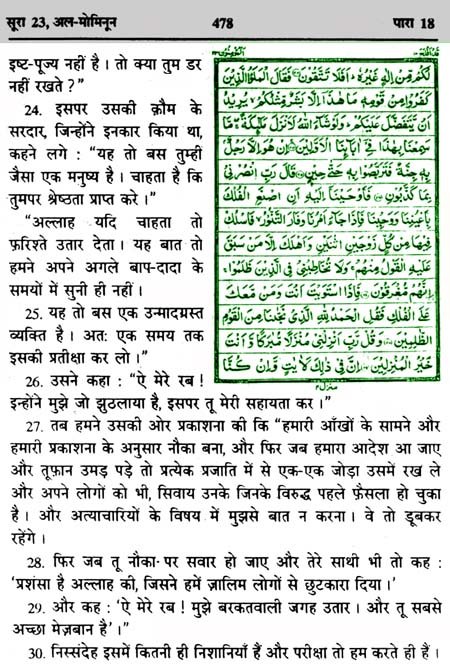 सूरा 23, अल-मोमिनून 478 पारा 18
इष्ट-पूज्य नहीं है। तो क्या तुम डर
नहीं रखते ?"
24. इसपर उसकी क़ौम के
सरदार, जिन्होंने इनकार किया था,
कहने लगे : "यह तो बस तुम्हीं
जैसा एक मनुष्य है। चाहता है कि
तुमपर श्रेष्ठता प्राप्त करे।"
"अल्लाह यदि चाहता तो
फ़रिश्ते उतार देता। यह बात तो
हमने अपने अगले बाप-दादा के
समयों में सुनी ही नहीं।
25. यह तो बस एक उन्मादग्रस्त
व्यक्ति है। अतः एक समय तक
इसकी प्रतीक्षा कर लो।"
26. उसने कहा : "ऐ मेरे रब !
इन्होंने मुझे जो झुठलाया है, इसपर तू मेरी सहायता कर।"
27. तब हमने उसकी ओर प्रकाशना की कि "हमारी आँखों के सामने और
हमारी प्रकाशना के अनुसार नौका बना, और फिर जब हमारा आदेश आ जाए
और तूफ़ान उमड़ पड़े तो प्रत्येक प्रजाति में से एक-एक जोड़ा उसमें रख ले
और अपने लोगों को भी, सिवाय उनके जिनके विरुद्ध पहले फ़ैसला हो चुका
है। और अत्याचारियों के विषय में मुझसे बात न करना। वे तो डूबकर
रहेंगे।
28. फिर जब तू नौका पर सवार हो जाए और तेरे साथी भी तो कह :
'प्रशंसा है अल्लाह की, जिसने हमें ज़ालिम लोगों से छुटकारा दिया।'
29. और कह : 'ऐ मेरे रब ! मुझे बरकतवाली जगह उतार। और तू सबसे
अच्छा मेज़बान है'।"
30. निस्संदेह इसमें कितनी ही निशानियाँ हैं और परीक्षा तो हम करते ही हैं।
لَكُمْ مِّنْ اِلٰهٍ غَيْرُهٗ اَفَلَا تَتَّقُوْنَ فَقَالَ الْمَلَؤُا الَّذِيْنَ
كَفَرُوْا مِنْ قَوْمِهٖ مَا هٰذَا اِلَّا بَشَرٌ مِّثْلُكُمْ يُرِيْدُ
اَنْ يَّتَفَضَّلَ عَلَيْكُمْ وَلَوْ شَآءَ اللّٰهُ لَاَنْزَلَ مَلٰٓئِكَةً مَّا
سَمِعْنَا بِهٰذَا فِيْٓ اٰبَآئِنَا الْاَوَّلِيْنَ اِنْ هُوَ اِلَّا رَجُلٌ
بِهٖ جِنَّةٌ فَتَرَبَّصُوْا بِهٖ حَتّٰى حِيْنٍ قَالَ رَبِّ انْصُرْنِيْ
بِمَا كَذَّبُوْنِ فَاَوْحَيْنَآ اِلَيْهِ اَنِ اصْنَعِ الْفُلْكَ
بِاَعْيُنِنَا وَوَحْيِنَا فَاِذَا جَآءَ اَمْرُنَا وَفَارَ التَّنُّوْرُ فَاسْلُكْ
فِيْهَا مِنْ كُلٍّ زَوْجَيْنِ اثْنَيْنِ وَاَهْلَكَ اِلَّا مَنْ سَبَقَ
عَلَيْهِ الْقَوْلُ مِنْهُمْ وَلَا تُخَاطِبْنِيْ فِي الَّذِيْنَ ظَلَمُوْا
اِنَّهُمْ مُّغْرَقُوْنَ فَاِذَا اسْتَوَيْتَ اَنْتَ وَمَنْ مَّعَكَ
عَلَى الْفُلْكِ فَقُلِ الْحَمْدُ لِلّٰهِ الَّذِيْ نَجّٰىنَا مِنَ الْقَوْمِ
الظّٰلِمِيْنَ وَقُلْ رَّبِّ اَنْزِلْنِيْ مُنْزَلًا مُّبٰرَكًا وَّاَنْتَ
خَيْرُ الْمُنْزِلِيْنَ اِنَّ فِيْ ذٰلِكَ لَاٰيٰتٍ وَّاِنْ كُنَّا